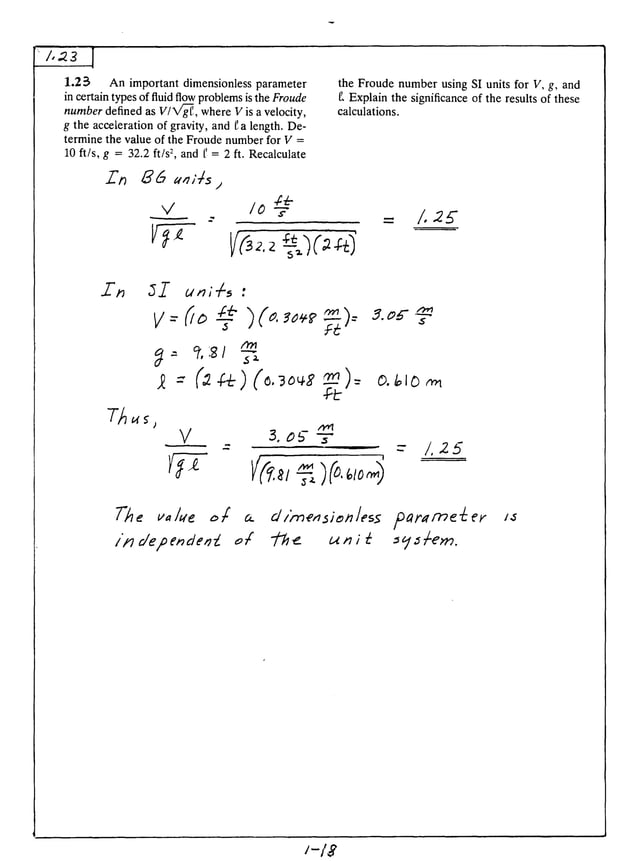 1.23
1.23 An important dimensionless parameter
in certain types of fluid flow problems is the Froude
number defined as V/√gℓ, where V is a velocity,
g the acceleration of gravity, and ℓ a length. De-
termine the value of the Froude number for V =
10 ft/s, g = 32.2 ft/s², and ℓ = 2 ft. Recalculate
the Froude number using SI units for V, g, and
ℓ. Explain the significance of the results of these
calculations.
In BG units,
V/√gℓ = 10 ft/s / √(32.2 ft/s²)(2 ft) = 1.25
In SI units:
V = (10 ft/s)(0.3048 m/ft) = 3.05 m/s
g = 9.81 m/s²
ℓ = (2 ft)(0.3048 m/ft) = 0.610 m
Thus,
V/√gℓ = 3.05 m/s / √(9.81 m/s²)(0.610 m) = 1.25
The value of a dimensionless parameter is
independent of the unit system.
1-18